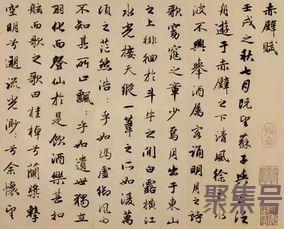 赤壁賦
壬戌之秋七月既望蘇子與客泛
舟遊于赤壁之下清風徐來水
波不興舉酒屬客誦明月之詩
歌窈窕之章少焉月出于東山
之上徘徊於斗牛之間白露橫江
水光接天縱一葦之所如凌萬頃
之茫然浩浩乎如馮虛御風而
不知其所止飄飄乎如遺世獨立
羽化而登仙於是飲酒樂甚扣
舷而歌之歌曰桂棹兮蘭槳擊
空明兮泝流光渺渺兮余懷望
聚集号